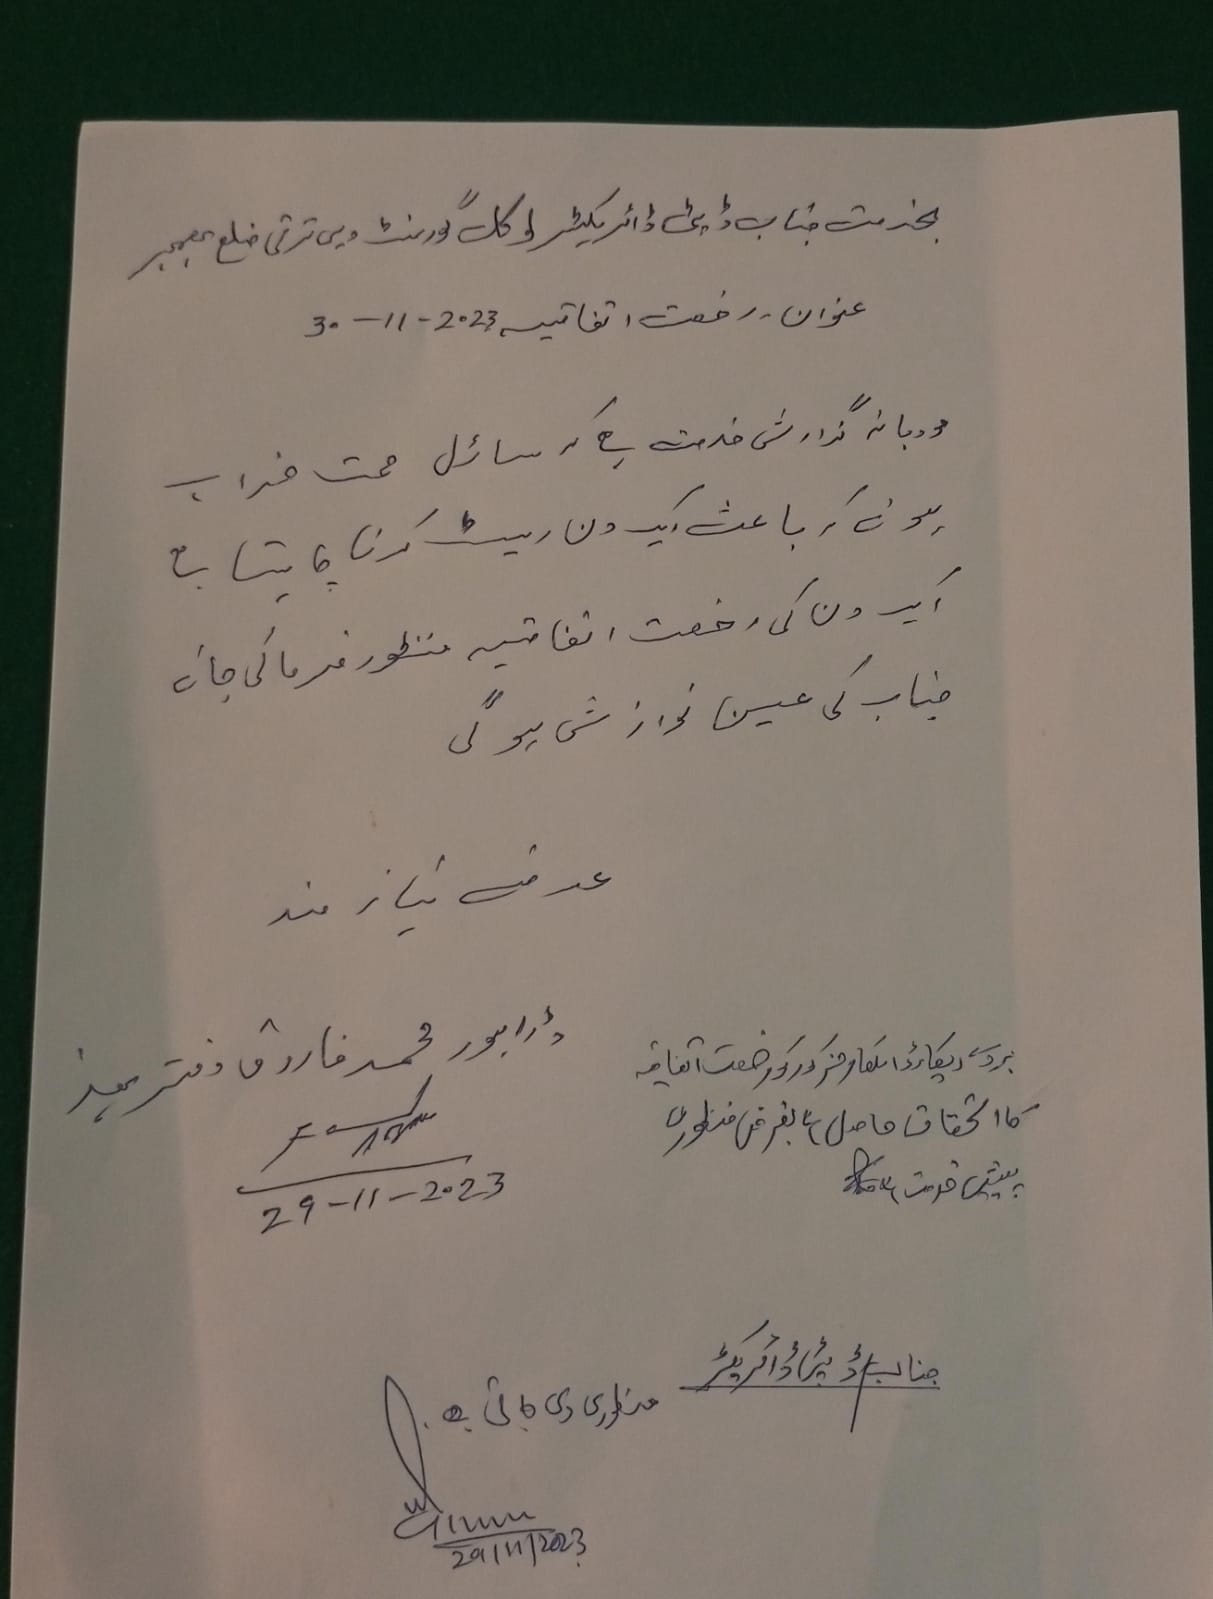 بخدمت جناب ڈپٹی ڈائریکٹر لوکل گورنمنٹ دیہی ترقی ضلع بھمبر
عنوان۔ رخصت اتفاقیہ 30-11-2023
مودبانہ گذارش خدمت ہے کہ سائل صحت خراب
ہونے کے باعث ایک دن ریسٹ کرنا چاہتا ہے
ایک دن کی رخصت اتفاقیہ منظور فرمائی جائے
جناب کی عین نوازش ہوگی
عرضے نیاز مند
ڈرائیور محمد فاروق دفتر ھذا
29-11-2023
بروئے ریکارڈ اہلکار مذکور کو رخصت اتفاقیہ
کا استحقاق حاصل ہے بغرض منظوری
پیش خدمت ہے
جناب ڈپٹی ڈائریکٹر
منظوری دی جاتی ہے۔
29/11/2023